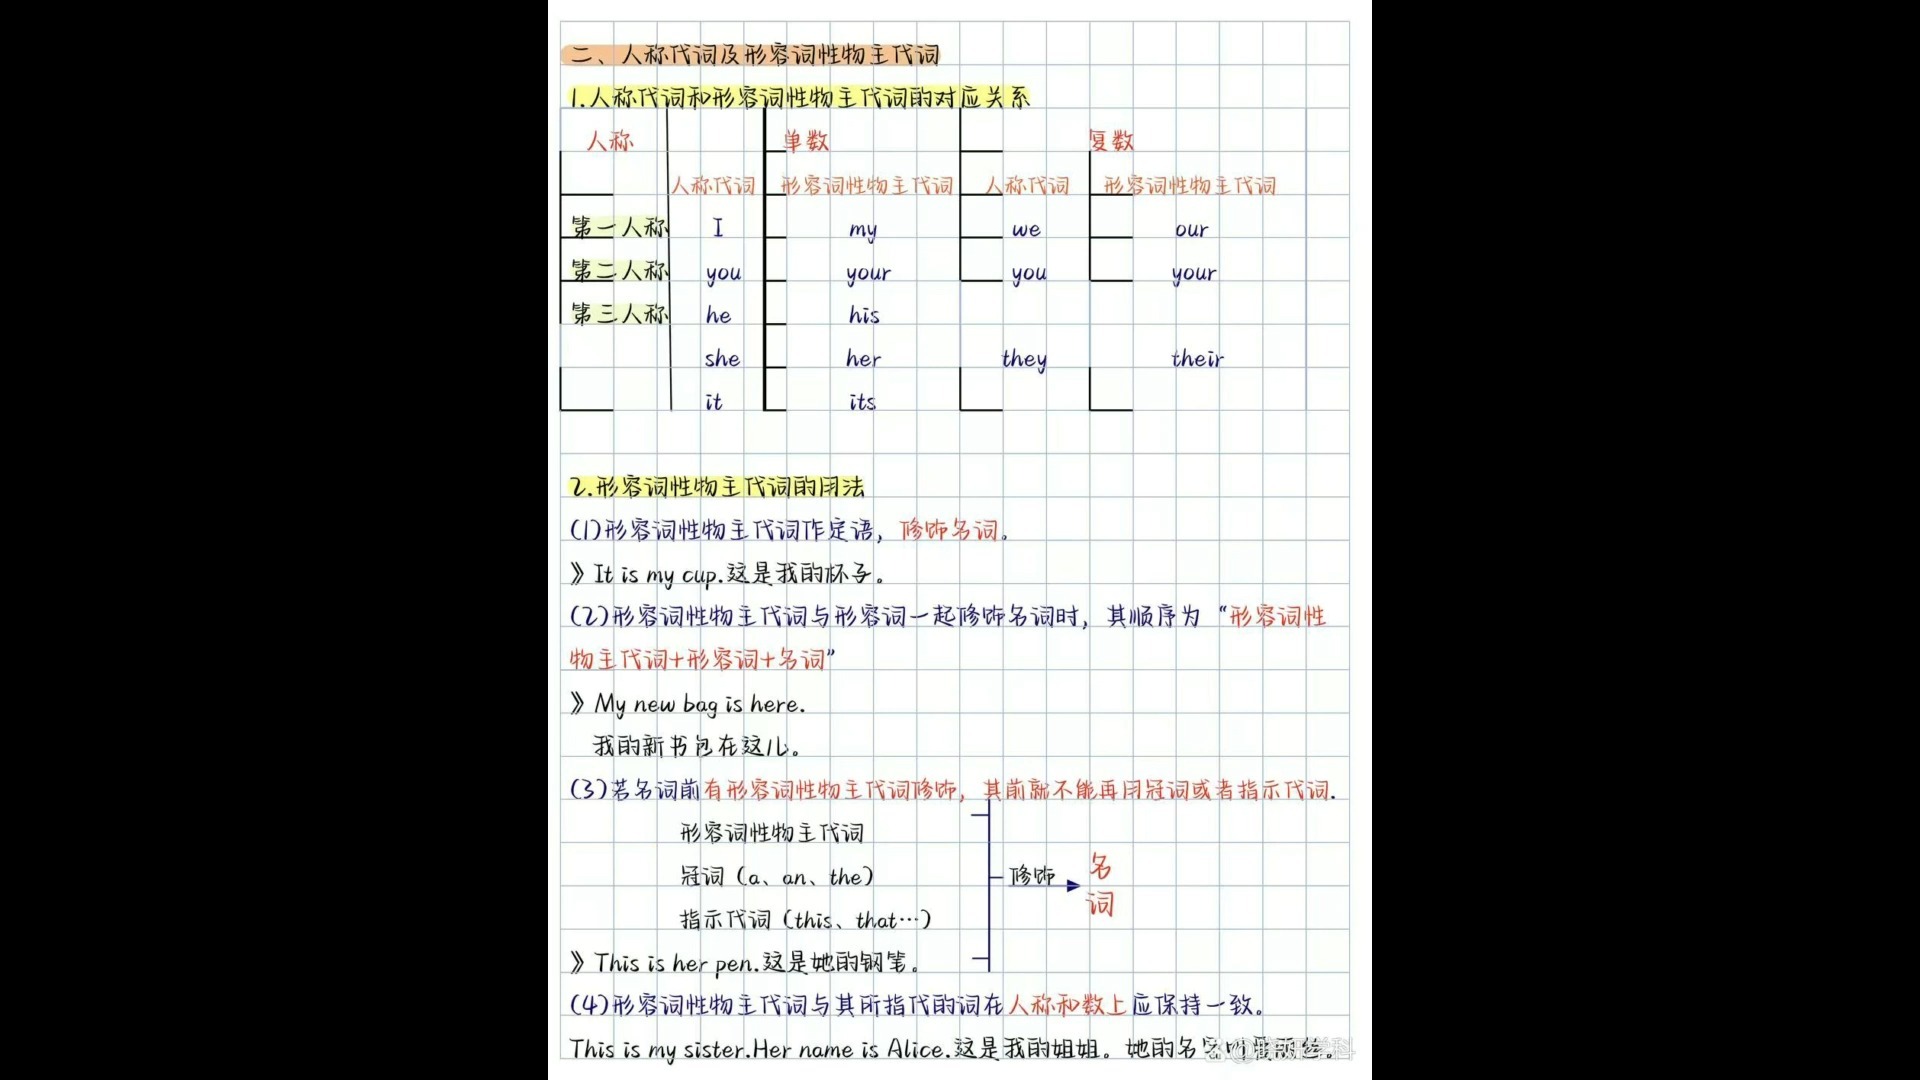 二、人称代词及形容词性物主代词
1.人称代词和形容词性物主代词的对应关系
人称 单数 复数
人称代词 形容词性物主代词 人称代词 形容词性物主代词
第一人称 I my we our
第二人称 you your you your
第三人称 he his
she her they their
it its
2.形容词性物主代词的用法
(1)形容词性物主代词作定语，修饰名词。
》It is my cup.这是我的杯子。
(2)形容词性物主代词与形容词一起修饰名词时，其顺序为“形容词性
物主代词+形容词+名词”
》My new bag is here.
我的新书包在这儿。
(3)若名词前有形容词性物主代词修饰，其前就不能再用冠词或者指示代词.
形容词性物主代词
冠词（a、an、the）
指示代词（this、that…）
修饰
名
词
》This is her pen.这是她的钢笔。
(4)形容词性物主代词与其所指代的词在人称和数上应保持一致。
This is my sister.Her name is Alice.这是我的姐姐。她的名字叫爱丽丝。